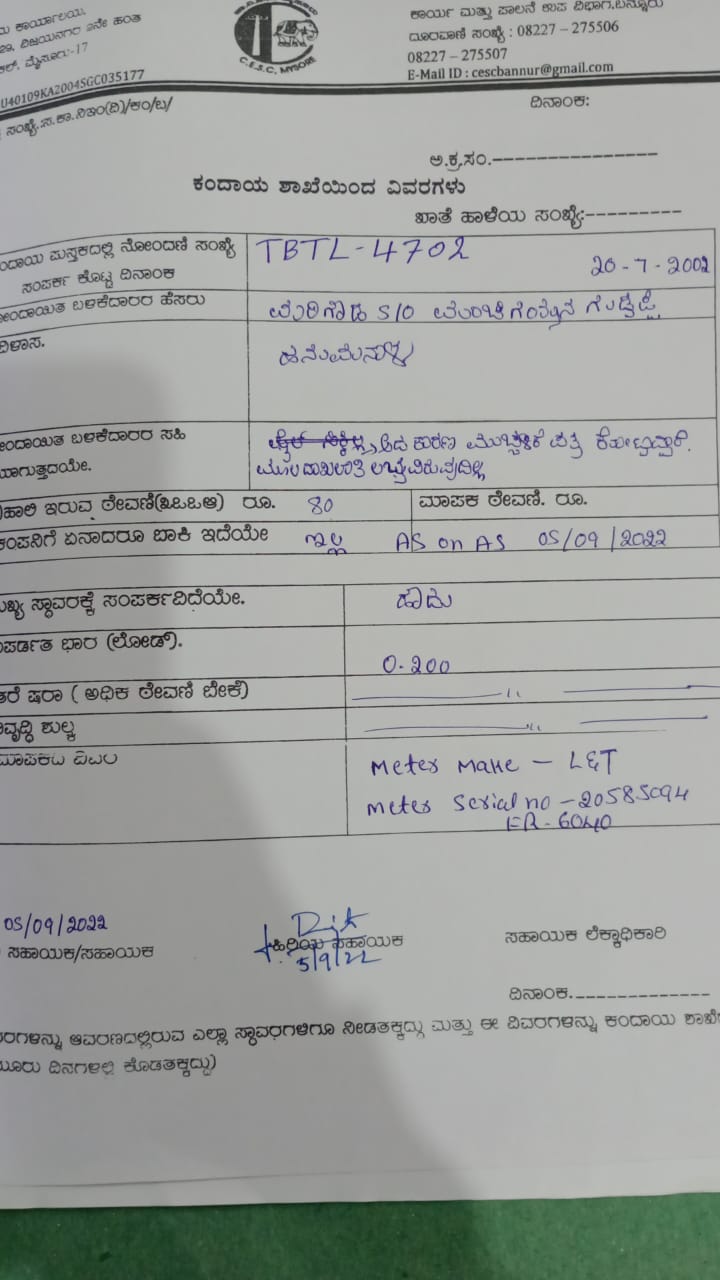 ಕಾರ್ಯ ಮತ್ತು ಪಾಲನೆ ಉಪ ವಿಭಾಗ, ಬನ್ನೂರು
ದೂರವಾಣಿ ಸಂಖ್ಯೆ : 08227 - 275506
08227 - 275507
E-Mail ID : cescbannur@gmail.com
ಕಾರ್ಯಾಲಯ,
29, ವಿಜಯನಗರ 2ನೇ ಹಂತ
ಮೈಸೂರು-17
U40109KA2004SGC035177
C.E.S.C, MYSORE
ದಿನಾಂಕ:
ಅ.ಕ್ರ.ಸಂ.---------------
ಕಂದಾಯ ಶಾಖೆಯಿಂದ ವಿವರಗಳು
ಖಾತೆ ಹಾಳೆಯ ಸಂಖ್ಯೆ:---------
ಂದಾಯ ಪುಸ್ತಕದಲ್ಲಿ ನೋಂದಣಿ ಸಂಖ್ಯೆ TBTL-4702
ಸಂಪರ್ಕ ಕೊಟ್ಟ ದಿನಾಂಕ 20-7-2002
ೋಂದಾಯಿತ ಬಳಕೆದಾರರ ಹೆಸರು S/O
ವಿಳಾಸ.
ೋಂದಾಯಿತ ಬಳಕೆದಾರರ ಸಹಿ ಆದ ಕಾರಣ ಮುಚ್ಚಳಿಕೆ ಪತ್ರ ಕೊಟ್ಟಿದ್ದಾರೆ.
ಯಾಗುತ್ತದಯೇ. ಮೂಲ ದಾಖಲಾತಿ ಲಭ್ಯವಿರುವುದಿಲ್ಲ
ಹಾಲಿ ಇರುವ ಠೇವಣಿ ರೂ. 80 ಮಾಪಕ ಠೇವಣಿ. ರೂ.
ಕಂಪನಿಗೆ ಏನಾದರೂ ಬಾಕಿ ಇದೆಯೇ ಇಲ್ಲ AS on AS 05/09/2022
ಮುಖ್ಯ ಸ್ಥಾವರಕ್ಕೆ ಸಂಪರ್ಕವಿದೆಯೇ. ಹೌದು
ಭಾರ (ಲೋಡ್). 0.200
ತರೆ ಷರಾ ( ಅಧಿಕ ಠೇವಣಿ ಬೇಕೆ) "
ಿವೃದ್ಧಿ ಶುಲ್ಕ "
ಮಾಪಕದ ವಿವರ Meter Make - L&T
Meter Serial no - 20585094
FR- 6040
05/09/2022
ಸಹಾಯಕ/ಸಹಾಯಕ
ಹಿರಿಯ ಸಹಾಯಕ
5/9/22
ಸಹಾಯಕ ಲೆಕ್ಕಾಧಿಕಾರಿ
ದಿನಾಂಕ.-------------
ರಗಳನ್ನು ಆವರಣದಲ್ಲಿರುವ ಎಲ್ಲಾ ಸ್ಥಾವರಗಳಿಗೂ ನೀಡತಕ್ಕದ್ದು ಮತ್ತು ಈ ವಿವರಗಳನ್ನು ಕಂದಾಯ ಶಾಖೆ
ಮೂರು ದಿನಗಳಲ್ಲಿ ಕೊಡತಕ್ಕದ್ದು)